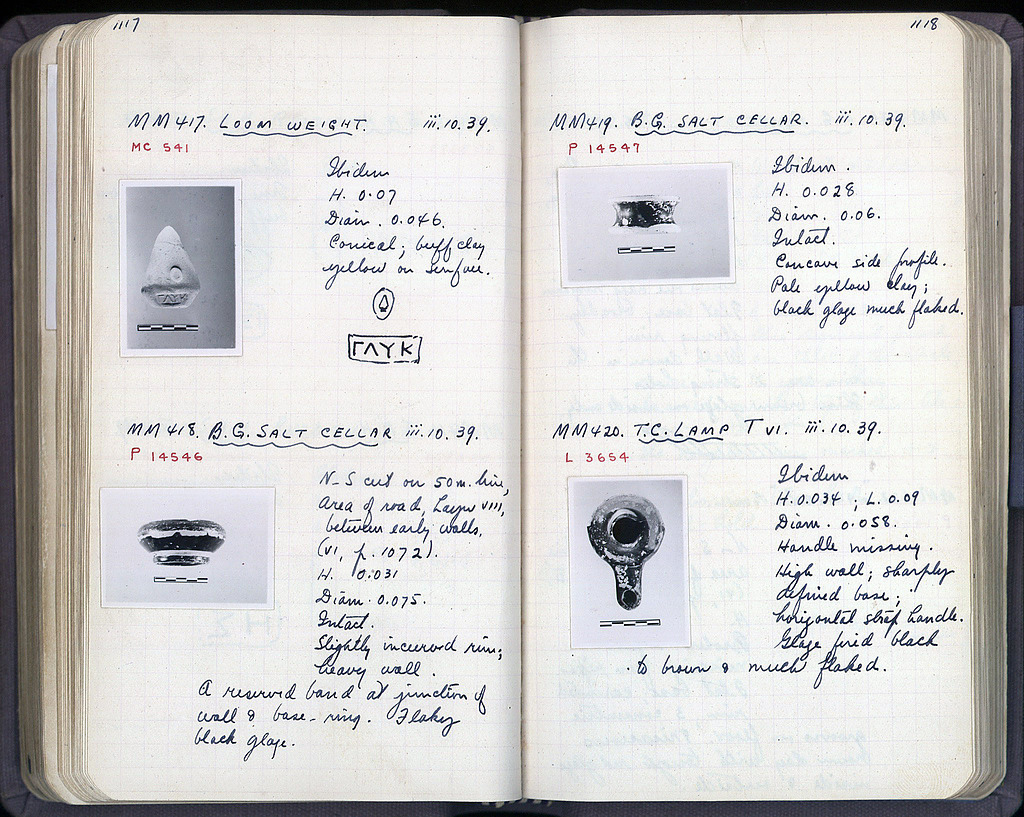 1117
MM417. LOOM WEIGHT. iii.10.39.
MC 541
Ibidem
H. 0.07
Diam. 0.046.
Conical; buff clay
yellow on surface.
ΓΛΥΚ
ΓΛΥΚ
MM418. B.G. SALT CELLAR iii.10.39.
P 14546
N-S cut on 50 m. line,
Area of road, Layer VIII,
between early walls.
(VI, p. 1072).
H. 0.031
Diam. 0.075.
Intact.
Slightly incurved rim;
heavy wall.
A reserved band at junction of
wall & base-ring. Flaky
black glaze.
1118
MM419. B.G. SALT CELLAR. iii.10.39.
P 14547
Ibidem.
H. 0.028
Diam. 0.06.
Intact.
Concave side profile.
Pale yellow clay;
black glaze much flaked.
MM420. T.C. LAMP T VI. iii.10.39.
L 3654
Ibidem
H. 0.034; L. 0.09
Diam. 0.058.
Handle missing.
High wall; sharply
defined base;
horizontal strap handle.
Glaze fired black
to brown & much flaked.